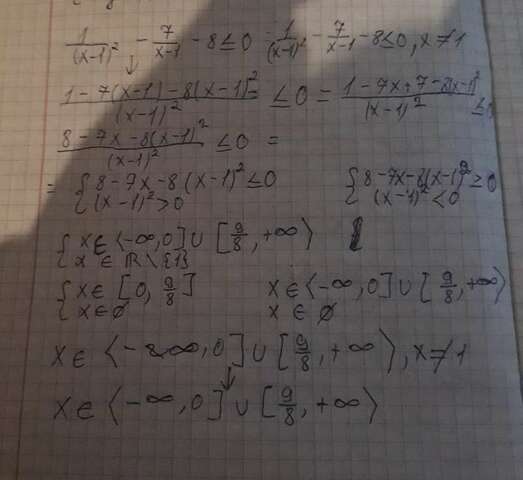 1/(x-1)² - 7/(x-1) - 8 ≤ 0 1/(x-1)² - 7/(x-1) - 8 ≤ 0, x ≠ 1
↓
(1 - 7(x-1) - 8(x-1)²)/(x-1)² ≤ 0 = (1 - 7x + 7 - 8(x-1)²)/(x-1)² ≤ 0
(8 - 7x - 8(x-1)²)/(x-1)² ≤ 0 =
= { 8 - 7x - 8(x-1)² ≤ 0 { 8 - 7x - 8(x-1)² ≥ 0
(x-1)² > 0 (x-1)² < 0
{ x ∈ ⟨-∞, 0] ∪ [9/8, +∞⟩
x ∈ ℝ \ {1}
{ x ∈ [0, 9/8] x ∈ ⟨-∞, 0] ∪ [9/8, +∞⟩
x ∈ ∅ x ∈ ∅
x ∈ ⟨-∞, 0] ∪ [9/8, +∞⟩, x ≠ 1
↓
x ∈ ⟨-∞, 0] ∪ [9/8, +∞⟩